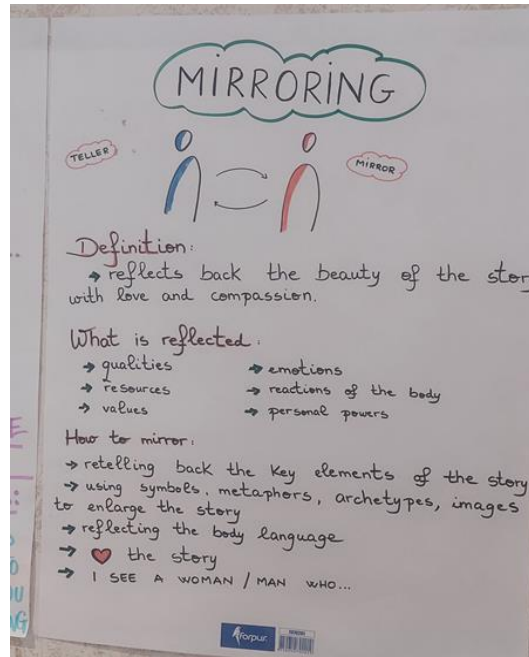 MIRRORING
TELLER
MIRROR
Definition:
→ reflects back the beauty of the story
with love and compassion.
What is reflected:
→ qualities
→ emotions
→ resources
→ reactions of the body
→ values
→ personal powers
How to mirror:
→ retelling back the key elements of the story
→ using symbols, metaphors, archetypes, images
to enlarge the story
→ reflecting the body language
→ ♥ the story
→ I SEE A WOMAN / MAN WHO...
forpus